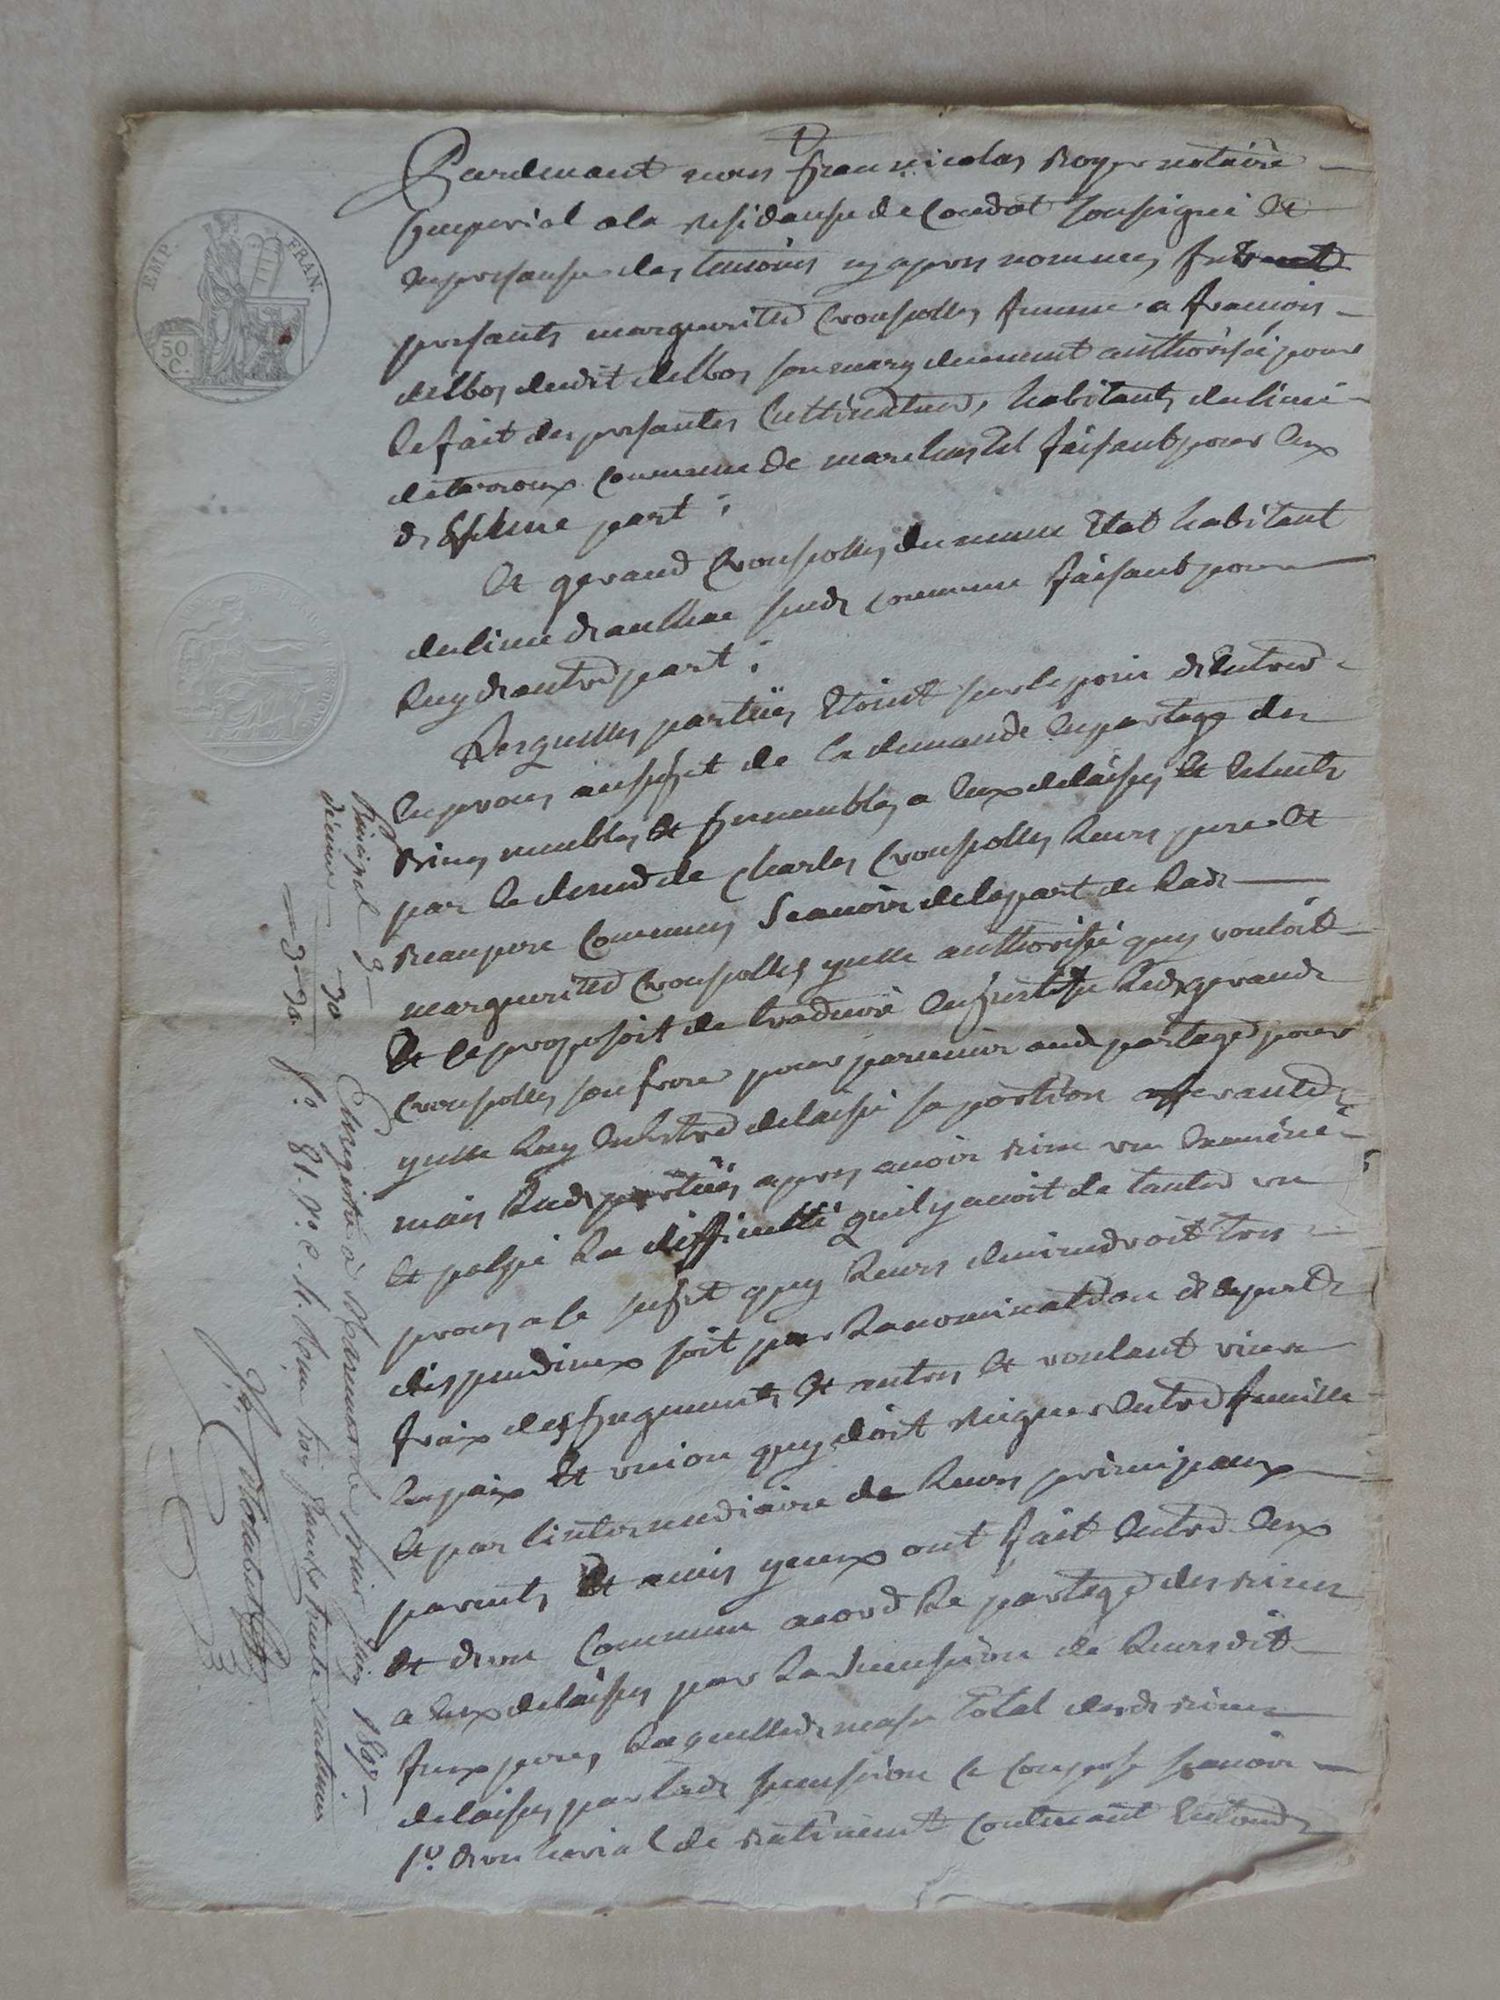 EMP. FRAN.
50 C.
Pardevant nous Jean nicolas Roger notaire
Imperial ala residanse de Condat soussigné et
en presanse des temoins cy apres nommes furent
presants marguerite Crouspolles femme a francois
delbos dudit delbos son mary duement authorisée pour
le fait des presantes Cultivateurs, habitants du lieu
de commune de marchastel faisant pour eux
d'une part ;
Et geraud Crouspolles du meme Etat habitant
du lieu d'aulhac susd. commune faisant pour
luy d'autre part ;
Lesquelles partïes Etoint sur le poin d'Entrer
en proces au sujet de la demande en partage des
Biens meubles et Immeubles a eux delaisses et
par le deces de Charles Crouspolles leurs pere et
Beaupere Communs scavoir de la part de lad.
marguerite Crouspolles y elle authorisé quy vouloit
et se proposoit de traduire en justisse led. geraud
Crouspolles son frere pour parvenir aud. partage pour
y elle luy Entre delaisse sa portion afferante
mais lesd. partïes apres avoir bien vu Examiné
et la difficulté qu'il y avoit de tanter un
proces a le sujet quy leurs deviendroit tres
dispendieux soit par la nomination d'experts
fraix des jugements et autres et voulant vivre
en paix et union quy doit reigner Entre famille
et par l'intermediaire de leurs principaux
parents et amis yceux ont fait Entre Eux
et d'un Commun acord le partage des biens
a Eux delaisses par la sucession de leurs dit
feux peres, laquelle masse total desd. biens
delaisses par lad. sucession se compose scavoir
1º. d'un de Batiment Contenant
Principal 3
décime 30
3 30
Enregistré à Marmanhac juin 1807
fº. 81. vº. c. 4. Reçu trois francs trente centimes